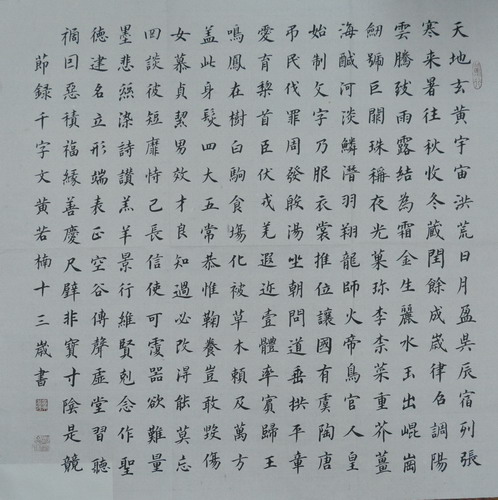 天地玄黃宇宙洪荒日月盈昃辰宿列張
寒来暑往秋收冬藏閏餘成歲律召調陽
雲騰致雨露結為霜金生麗水玉出崐崗
劒號巨闕珠稱夜光菓珎李柰菜重芥薑
海醎河淡鱗潛羽翔龍師火帝鳥官人皇
始制文字乃服衣裳推位讓國有虞陶唐
吊民伐罪周發殷湯坐朝問道垂拱平章
愛育黎首臣伏戎羌遐迩壹體率賓歸王
鳴鳳在樹白駒食場化被草木賴及萬方
盖此身髮四大五常恭惟鞠養豈敢毀傷
女慕貞絜男效才良知過必改得能莫忘
罔談彼短靡恃己長信使可覆器欲難量
墨悲絲染詩讚羔羊景行維賢剋念作聖
德建名立形端表正空谷傳聲虛堂習聽
禍因惡積福緣善慶尺璧非寶寸陰是競
節録千字文黄若楠十三歲書